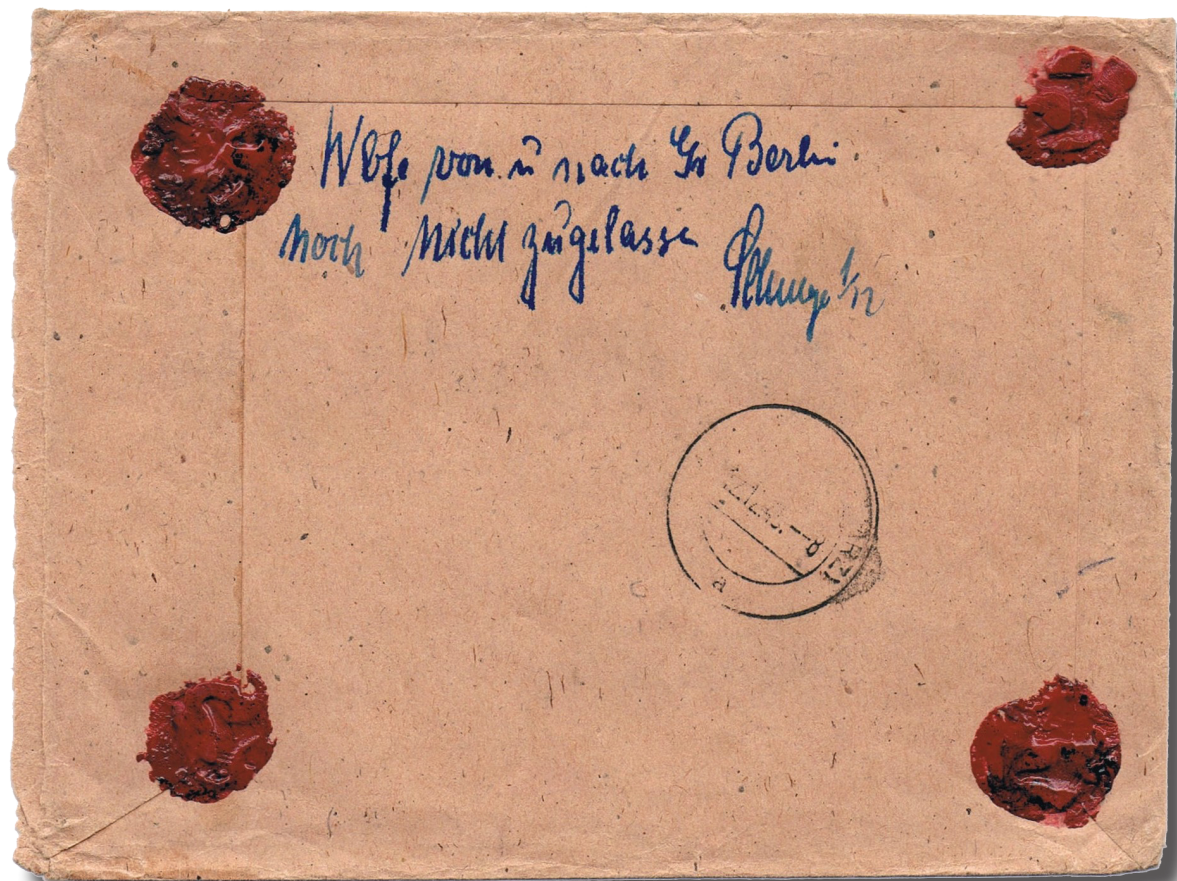 Wbfe von ü nach Gr Berlin
noch nicht zugelassen
1/12
a